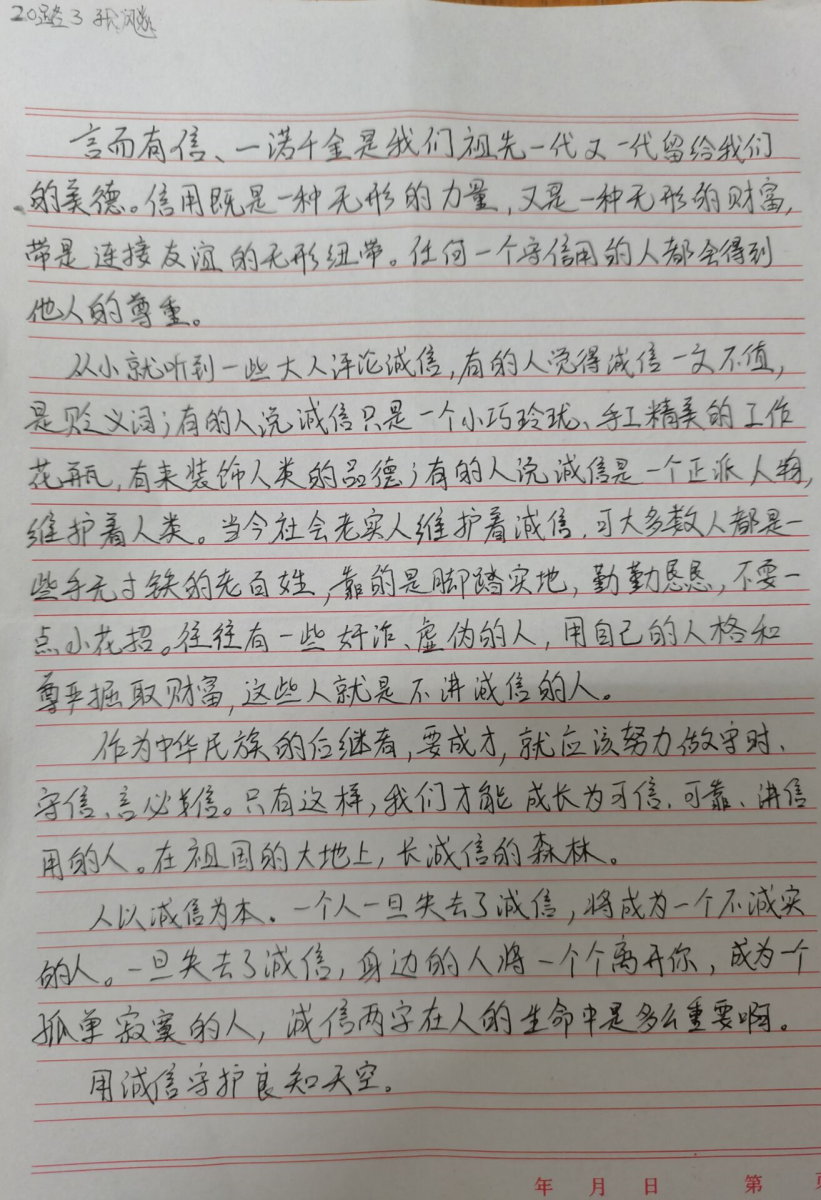 言而有信、一诺千金是我们祖先一代又一代留给我们
的美德。信用既是一种无形的力量,又是一种无形的财富,
带是连接友谊的无形纽带。任何一个守信用的人都会得到
他人的尊重。
从小就听到一些大人评论诚信,有的人觉得诚信一文不值,
是贬义词;有的人说诚信只是一个小巧玲珑、手工精美的工作
花瓶,有来装饰人类的品德;有的人说诚信是一个正派人物,
维护着人类。当今社会老实人维护着诚信,可大多数人都是一
些手无寸铁的老百姓,靠的是脚踏实地,勤勤恳恳,不耍一
点小花招。往往有一些奸诈、虚伪的人,用自己的人格和
尊严掘取财富,这些人就是不讲诚信的人。
作为中华民族的后继者,要成才,就应该努力做守时、
守信、言必信。只有这样,我们才能成长为可信、可靠、讲信
用的人。在祖国的大地上,长诚信的森林。
人以诚信为本。一个人一旦失去了诚信,将成为一个不诚实
的人。一旦失去了诚信,身边的人将一个个离开你,成为一个
孤单寂寞的人,诚信两字在人的生命中是多么重要啊。
用诚信守护良知天空。
年 月 日 第 页